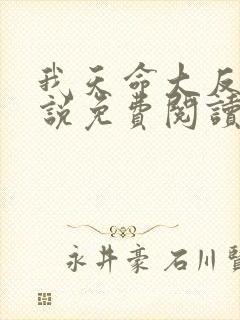 我天命大反
說免費閱讀
永井豪 石川賢